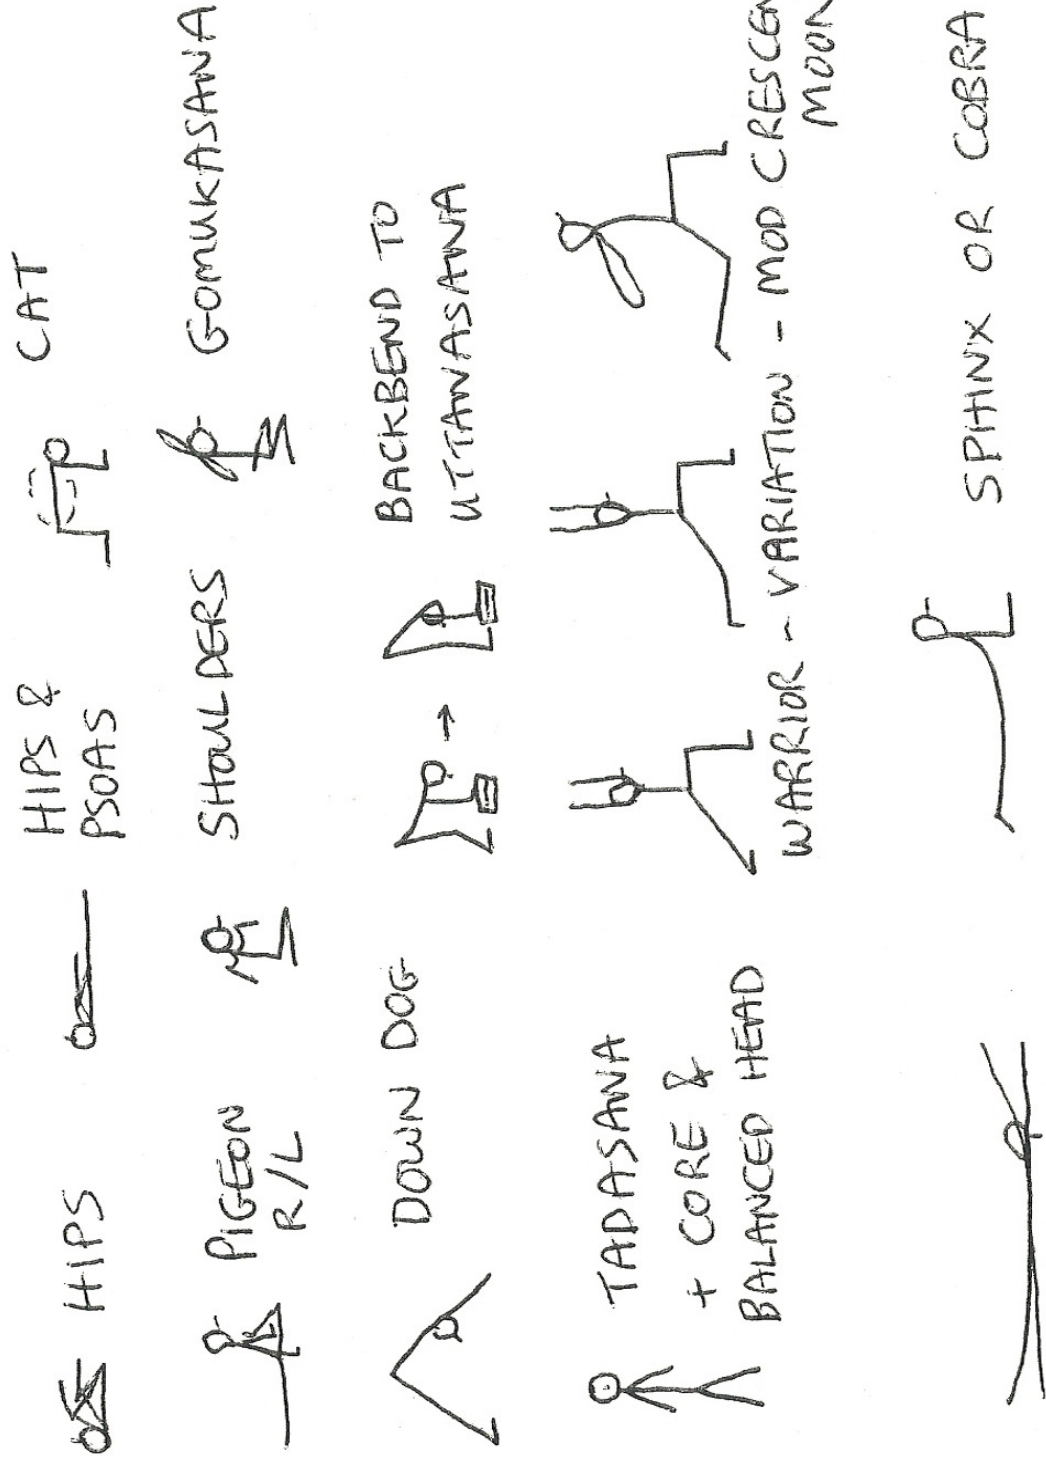 HIPS
HIPS &
PSOAS
CAT
PIGEON
R/L
SHOULDERS
GOMUKASANA
DOWN DOG
BACKBEND TO
UTTANASANA
TADASANA
+ CORE &
BALANCED HEAD
WARRIOR - VARIATION - MOD CRESCEN
MOON
SPHINX OR COBRA